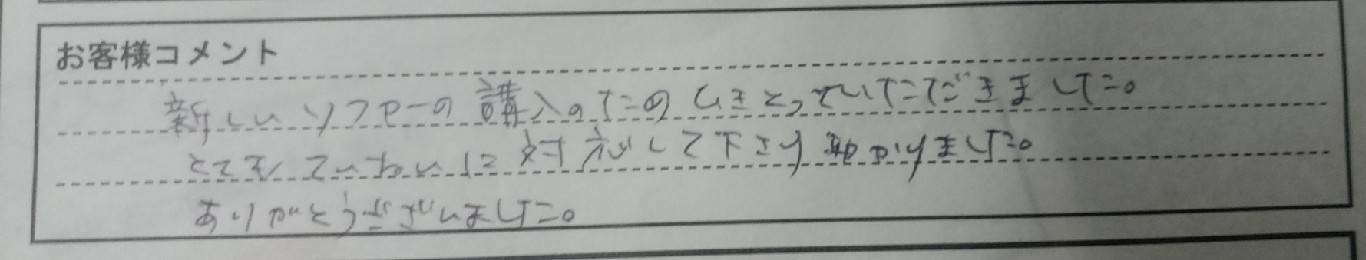 お客様コメント
新しいソファーの購入のためひきとっていただきました。
とてもていねいに対応して下さり助かりました。
ありがとうございました。